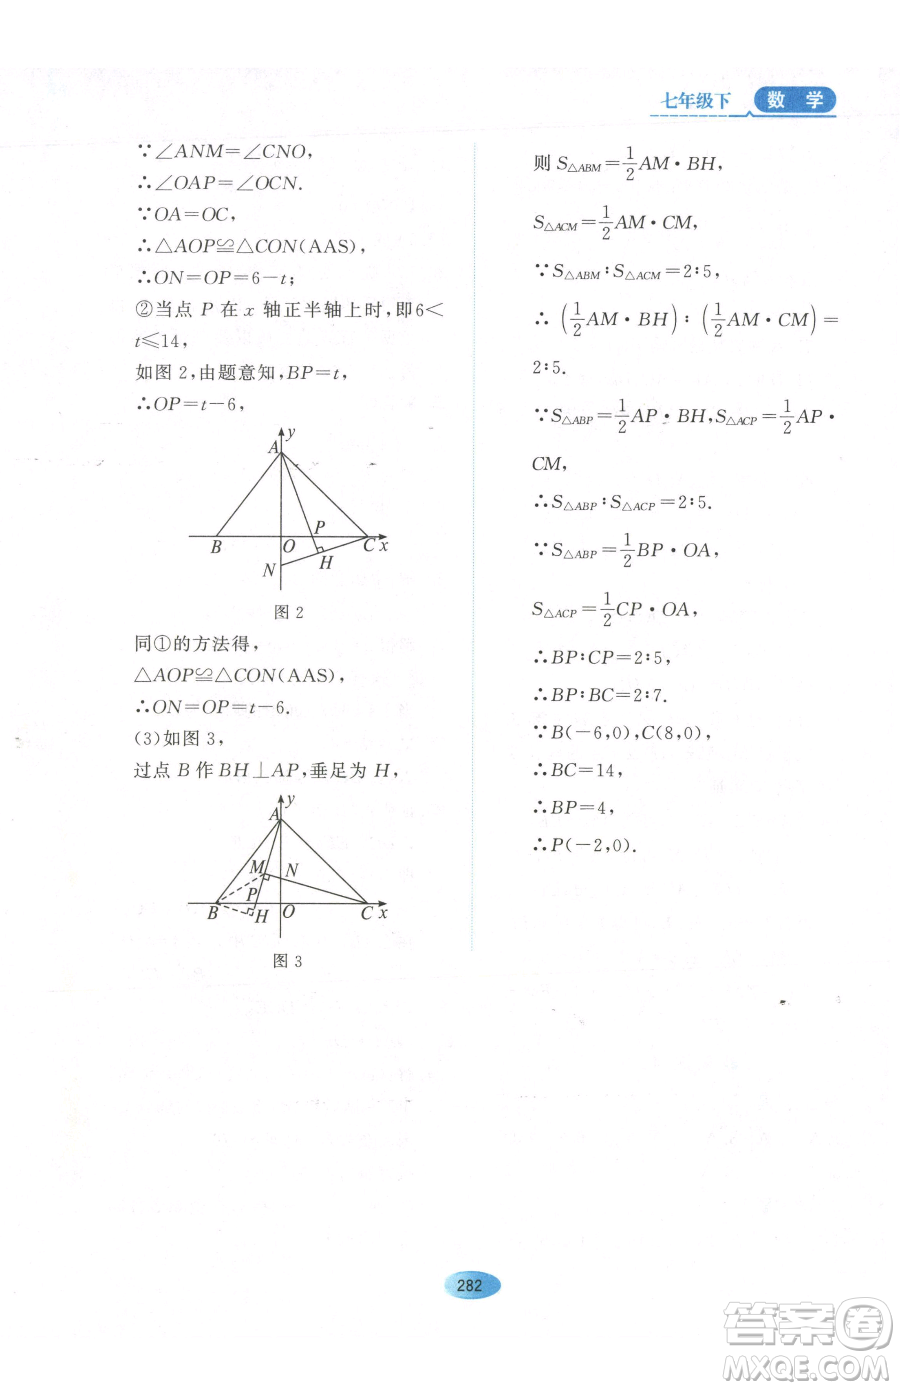 七年级下 数 学
∵∠ANM=∠CNO,
∴∠OAP=∠OCN.
∵OA=OC,
∴△AOP≌△CON(AAS),
∴ON=OP=6-t;
②当点 P 在 x 轴正半轴上时,即6<
t≤14,
如图 2,由题意知,BP=t,
∴OP=t-6,
y
A
P
B O C x
H
N
图 2
同①的方法得,
△AOP≌△CON(AAS),
∴ON=OP=t-6.
(3)如图 3,
过点 B 作 BH⊥AP,垂足为 H,
y
A
M N
P
B H O C x
图 3
则 S△ABM=1/2AM·BH,
S△ACM=1/2AM·CM,
∵S△ABM∶S△ACM=2∶5,
∴(1/2AM·BH)∶(1/2AM·CM)=
2∶5.
∵S△ABP=1/2AP·BH,S△ACP=1/2AP·
CM,
∴S△ABP∶S△ACP=2∶5.
∵S△ABP=1/2BP·OA,
S△ACP=1/2CP·OA,
∴BP∶CP=2∶5,
∴BP∶BC=2∶7.
∵B(-6,0),C(8,0),
∴BC=14,
∴BP=4,
∴P(-2,0).
282
答案圈
MXQE.COM